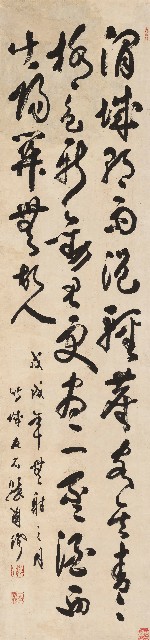 渭城朝雨浥輕塵客舍青〻
柳色新勸君更盡一盃酒西
出陽關無故人
戊戌年無射之月